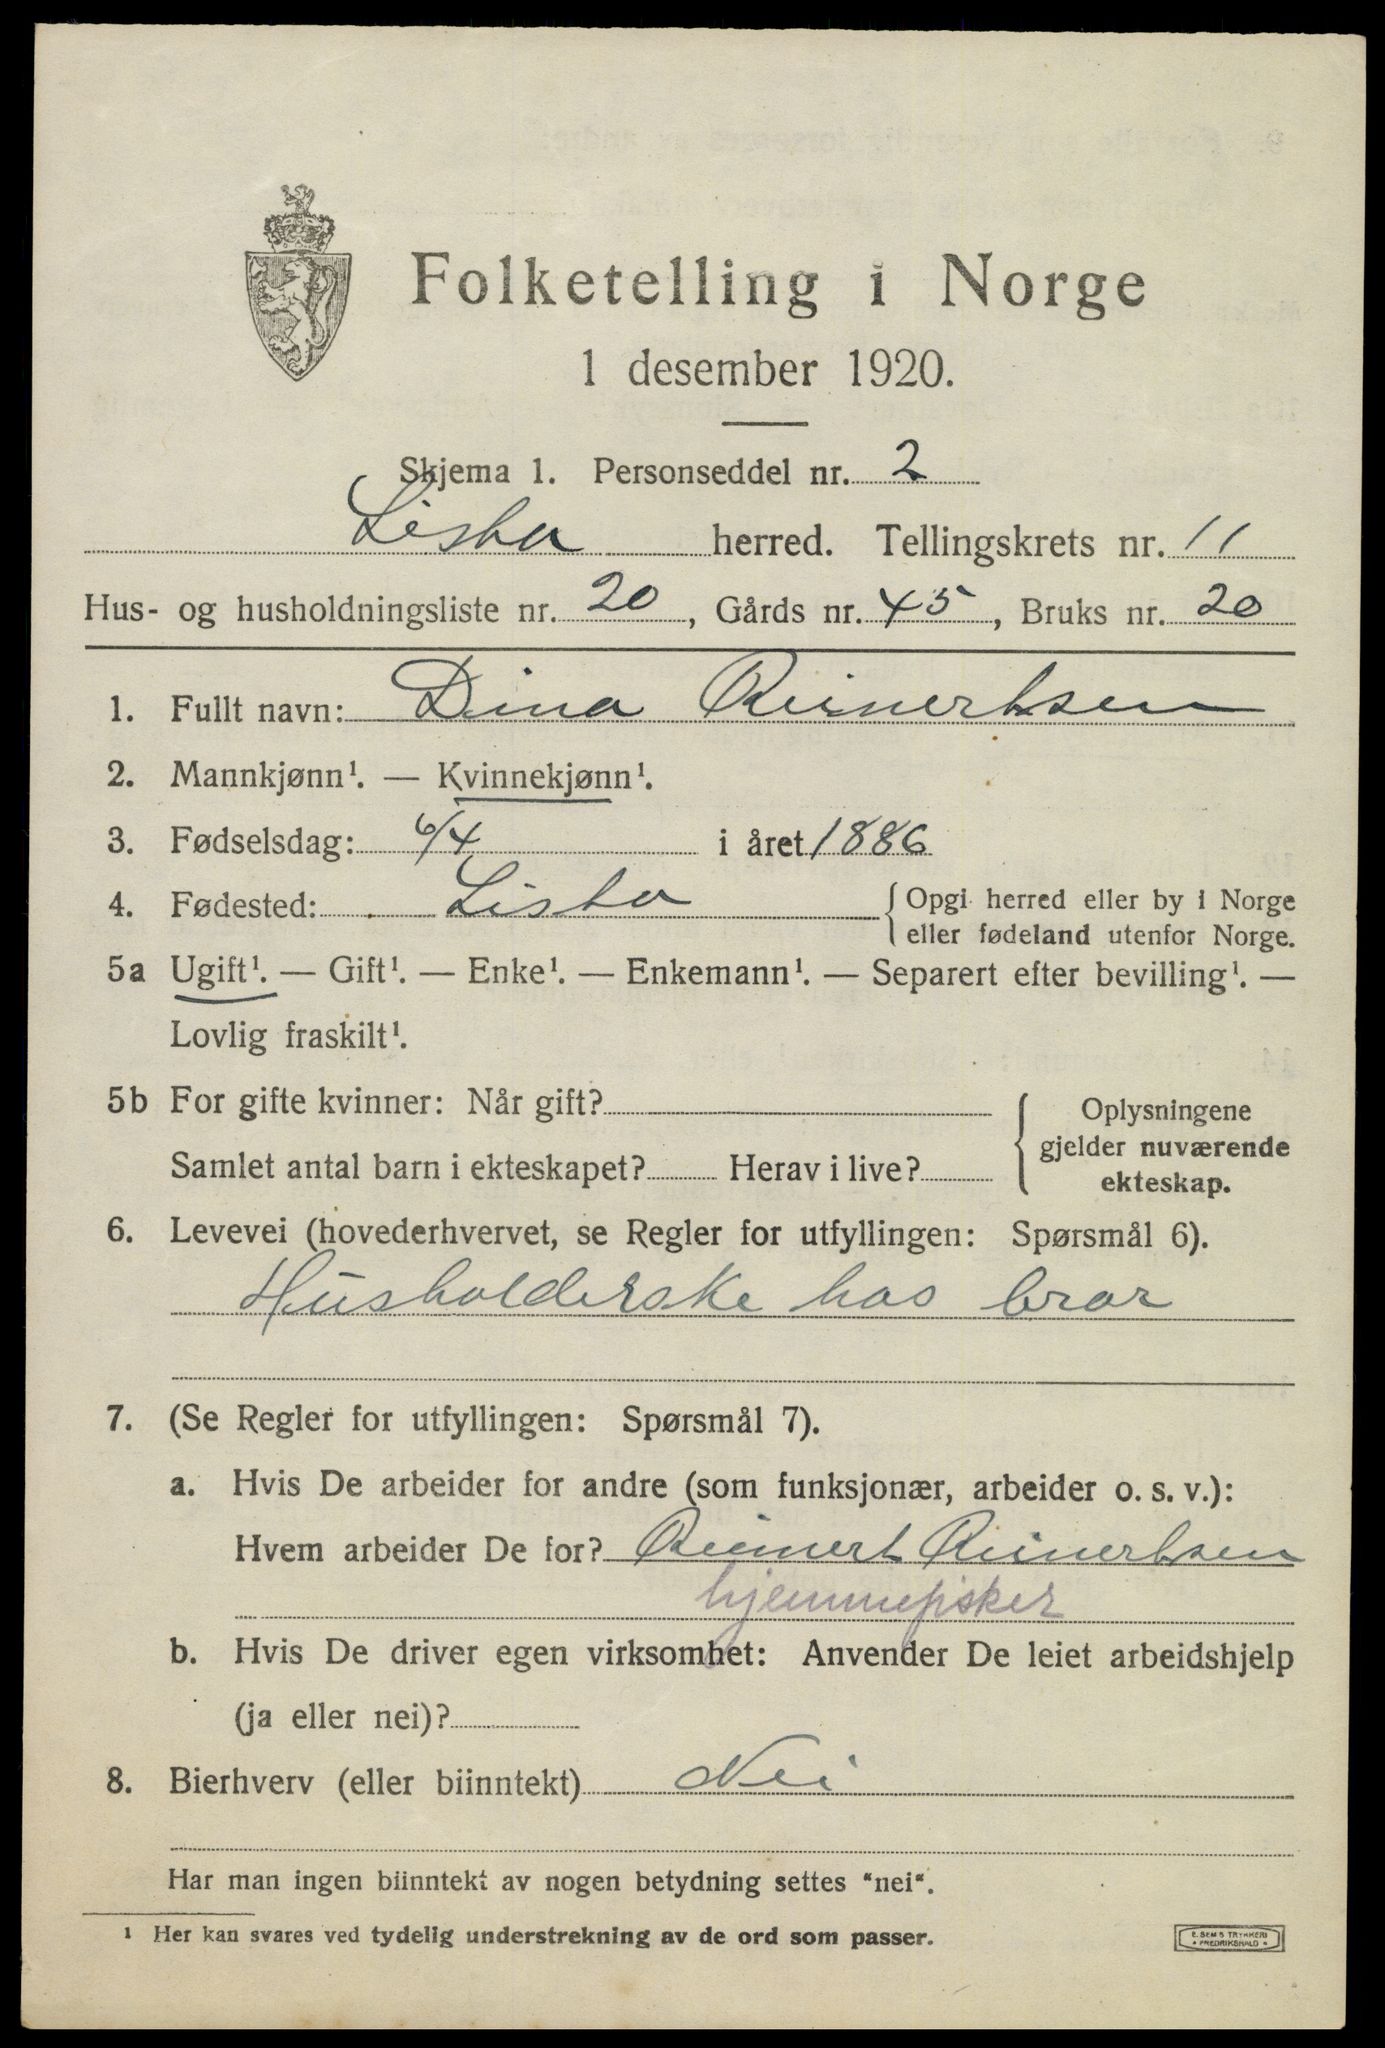 Folketelling i Norge
1 desember 1920.
Skjema 1. Personseddel nr. 2
Lista herred. Tellingskrets nr. 11
Hus- og husholdningsliste nr. 20, Gårds nr. 45, Bruks nr. 20
1. Fullt navn: Dina Reinertsen
2. Mannkjønn¹. — Kvinnekjønn¹.
3. Fødselsdag: 6/4 i året 1886
4. Fødested: Lista {Opgi herred eller by i Norge
eller fødeland utenfor Norge.
5a Ugift¹. — Gift¹. — Enke¹. — Enkemann¹. — Separert efter bevilling¹. —
Lovlig fraskilt¹.
5b For gifte kvinner: Når gift?
Samlet antal barn i ekteskapet? Herav i live?
Oplysningene
gjelder nuværende
ekteskap.
6. Levevei (hovederhvervet, se Regler for utfyllingen: Spørsmål 6).
Husholderske hos bror
7. (Se Regler for utfyllingen: Spørsmål 7).
a. Hvis De arbeider for andre (som funksjonær, arbeider o. s. v.):
Hvem arbeider De for? Reinert Reinertsen
hjemmefisker
b. Hvis De driver egen virksomhet: Anvender De leiet arbeidshjelp
(ja eller nei)?
8. Bierhverv (eller biinntekt) Nei
Har man ingen biinntekt av nogen betydning settes "nei".
¹ Her kan svares ved tydelig understrekning av de ord som passer.
E. SEM'S TRYKKERI
* FREDRIKSHALD *